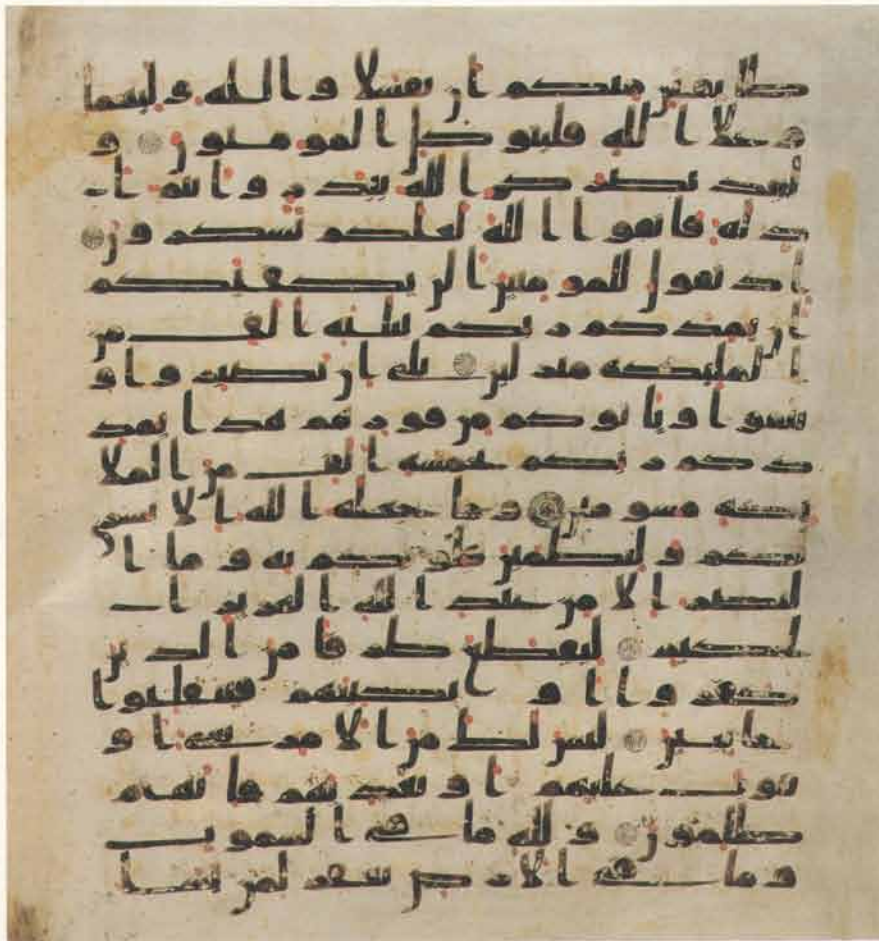 طايفتين منكم ان تفشلا والله وليهما
وعلا الله فليتوكل المومنون و
لقد نصركم الله ببدر وانتم ا
ذلة فاتقوا الله لعلكم تشكرون
اذ تقول للمومنين الن يكفيكم
ان يمدكم ربكم بثلثة الف من
المليكة منزلين بلى ان تصبروا و
تتقوا وياتوكم من فورهم هذا يمد
دكم ربكم بخمسة الف من الملا
يكة مسومين وما جعله الله الا بشر
لكم ولتطمين قلوبكم به وما ا
لنصر الا من عند الله العزيز ا
لحكيم ليقطع طرفا من الذين
كفروا او يكبتهم فينقلبوا
خايبين ليس لك من الامر شي او
يتوب عليهم او يعذبهم فانهم
ظلمون ولله ما في السموت
وما في الارض يغفر لمن يشا